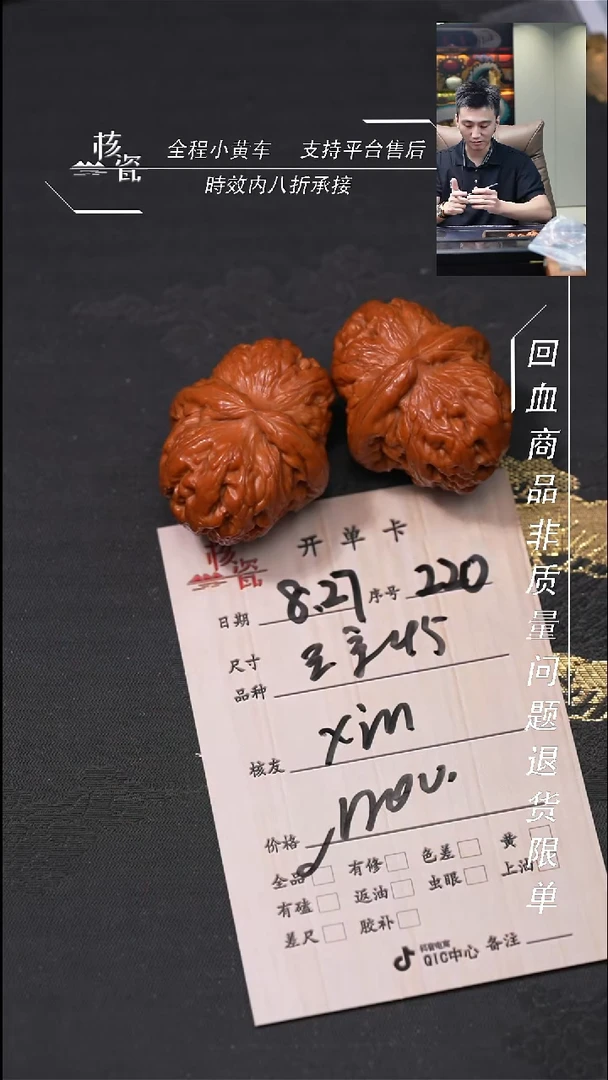 核瓷
全程小黄车 支持平台售后
時效内八折承接
回血商品非质量问题退货限单
核瓷
开单卡
日期 8.27 序号 220
尺寸
品种 45
核友 xin
价格
全品 有修 色差 黄
有磕 返油 虫眼 上油
差尺 胶补
抖音电商
QIC中心 备注